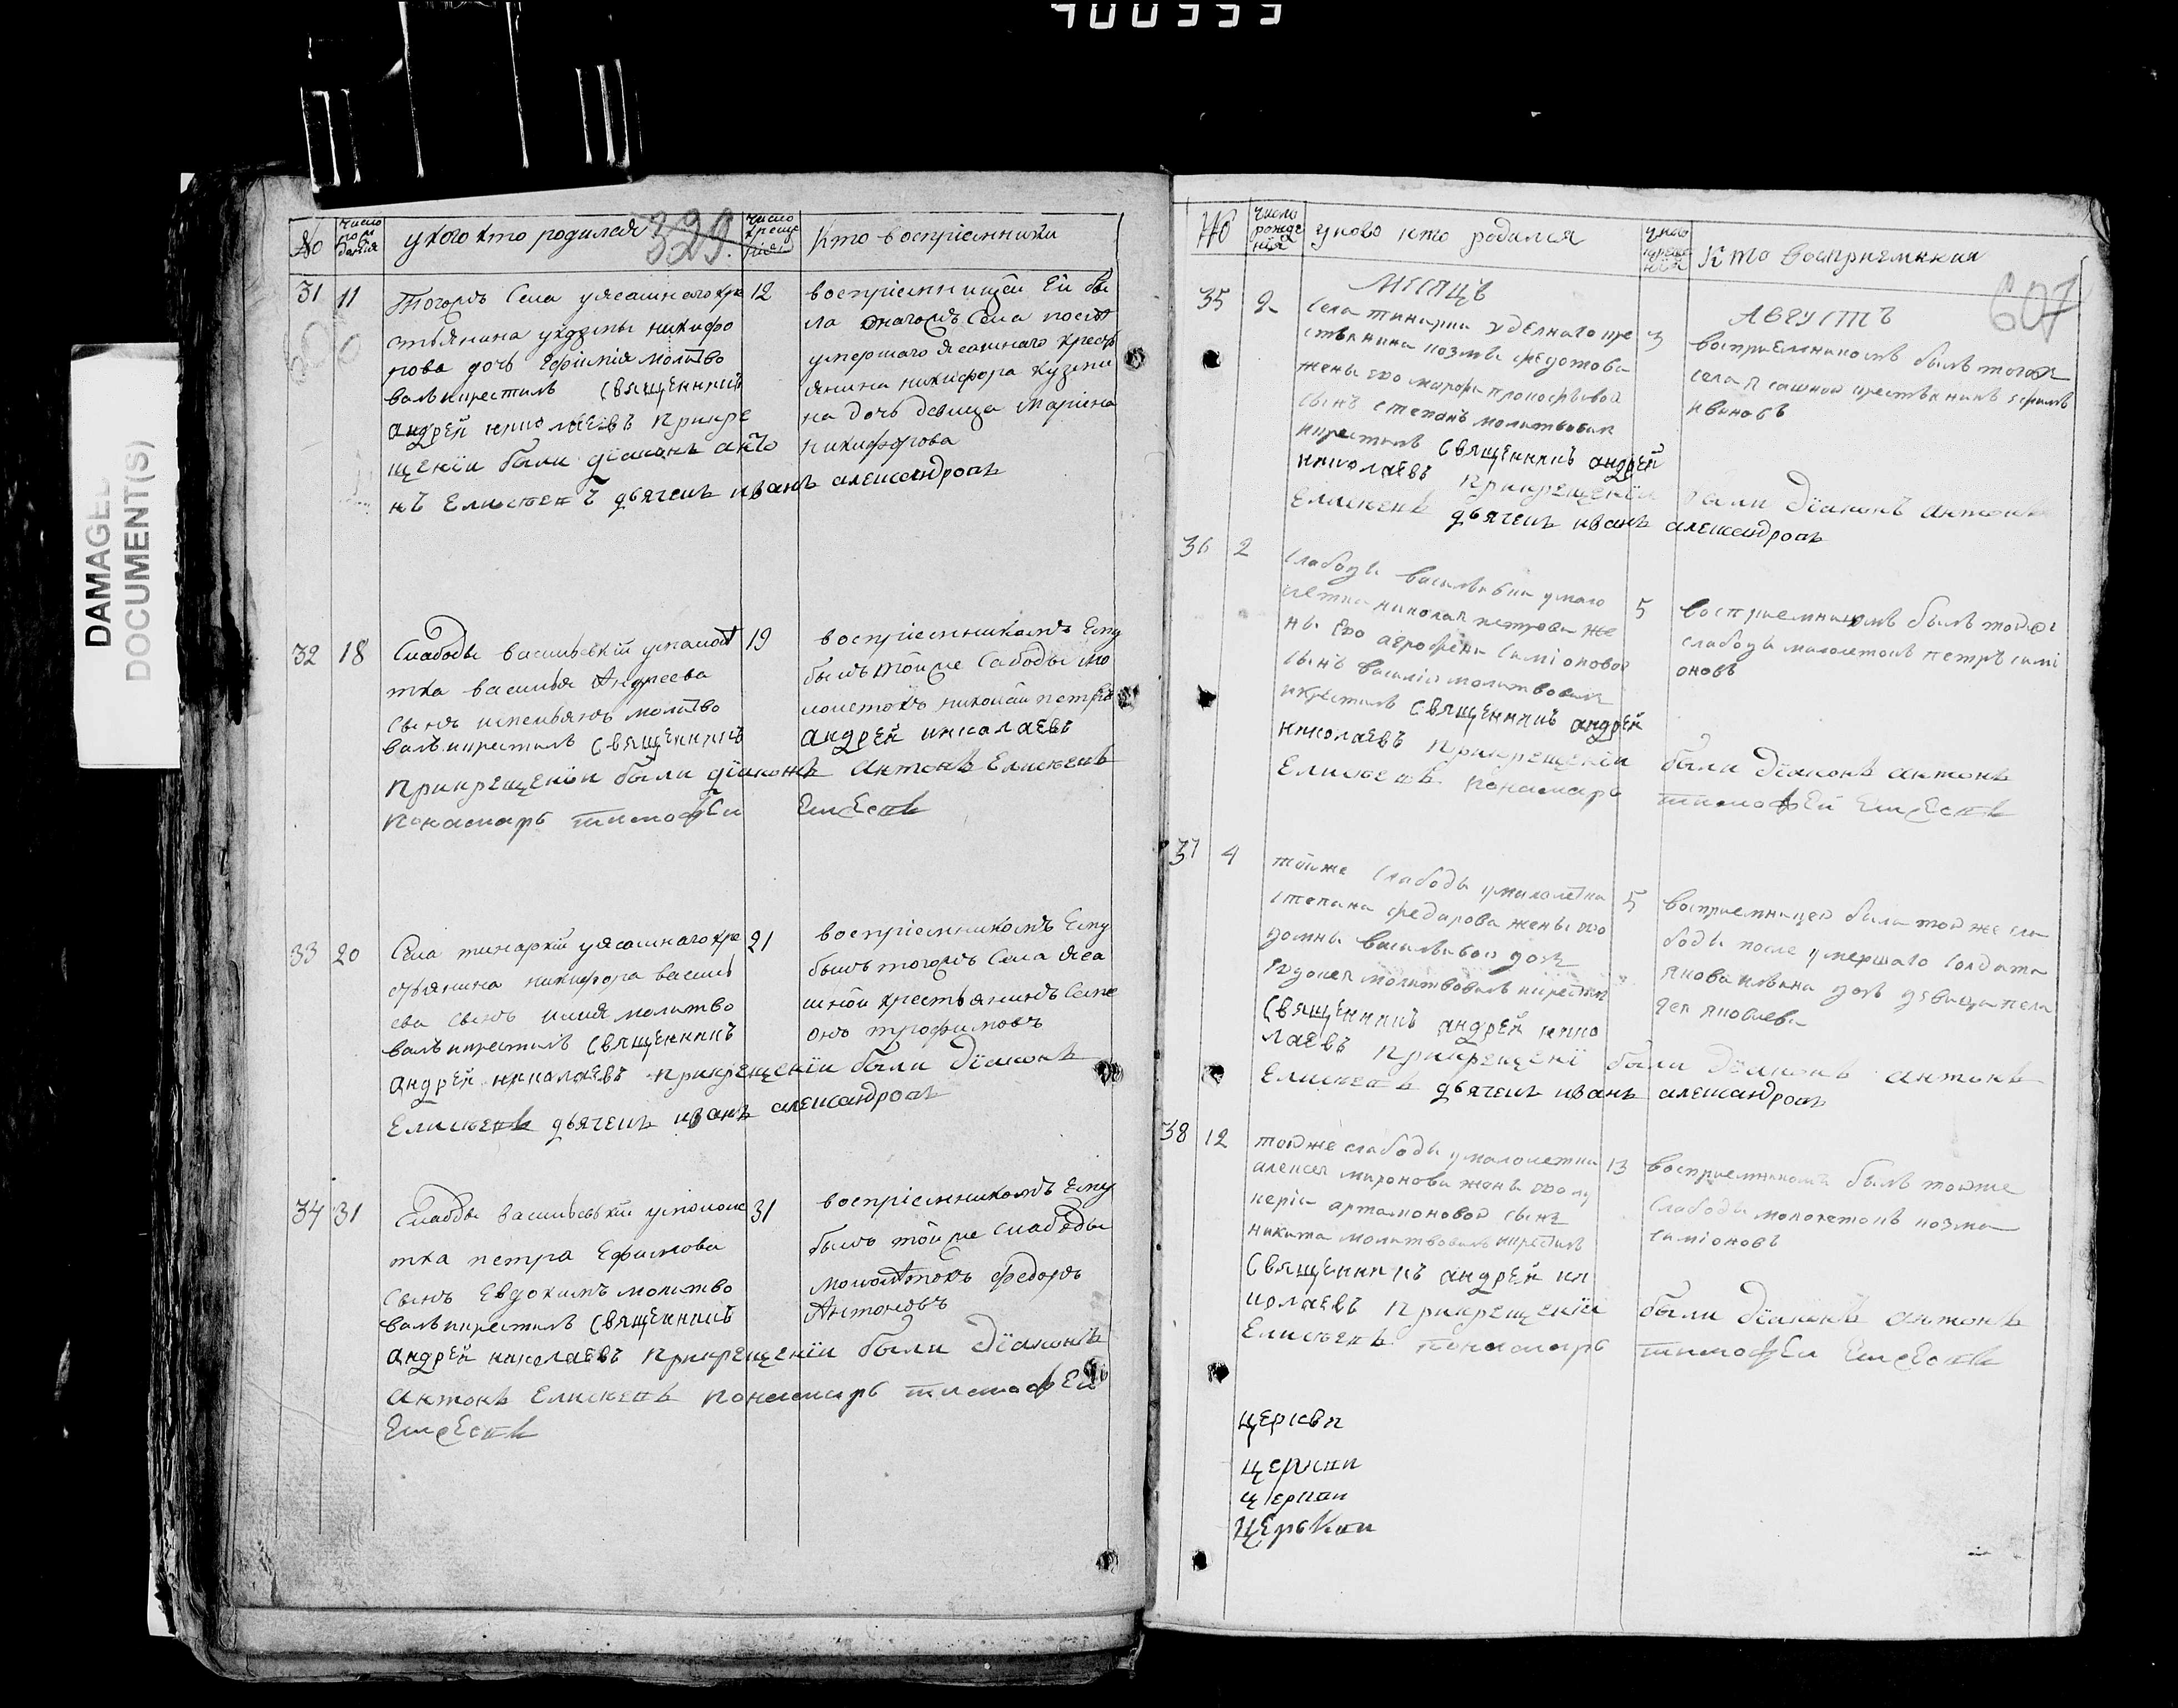 DAMAGED
DOCUMENT(S)
№
число рождения
у кого кто родился
329.
число крещения
кто восприемники
31 11
тогожъ села уясашнаго кре
стьянина кузмы никифо
рова дочь Ефимия молитво
валъ икрестилъ священникъ
андрей николаевъ прикре
щении были диаконъ анто
нъ Елисеевъ дьячекъ иванъ александровъ
12
восприемницей Ей бы
ла онагожъ села после
умершаго ясашнаго кресть
янина никифора кузми
на дочь девица Марина
никифорова
32 18
Слабоды васильевкй умалолѣ
тка василья Андреева
сынъ молитво
валъ икрестилъ священникъ
19
восприемникомъ Ему
былъ тойже сабоды мо
лолетокъ николай петровъ
андрей николаевъ
прикрещении были диаконъ антонъ Елисеевъ
понамарь тимофеи
33 20
Села тинаркй уясашнаго кре
стьянина никифора василь
ева сынъ илия молитво
валъ икрестилъ священникъ
андрей николаевъ прикрещении были диаконъ
Елисеевъ дьячекъ иванъ александровъ
21
восприемникомъ Ему
былъ тогожъ села яса
шной крестьянинъ Симе
онъ трофимовъ
34 31
Слабоды васильевкй умололе
тка петра Ефимова
сынъ Евдокимъ молитво
валъ икрестилъ священникъ
андрей николаевъ прикрещении были диаконъ
антонъ Елисеевъ понамарь тимофей
31
восприемникомъ Ему
былъ тойже слабоды
мололѣтокъ федоръ
Антоновъ
№
число рождения
уково кто родался
число крещения
Кто восприемники
607
МЕСЯЦЪ
АВГУСТЪ
35 2
села тинарки уделнаго кре
стьянина козмы федотова
жены ево марфы прокофьевой
сынъ степанъ молитвовал
икрестилъ священникъ андрей
николаевъ прикрещении
Елисеевъ дьячекъ иванъ александровъ
3
восприемникомъ былъ тогож
села ясашной крестьянинъ ефимъ
ивановъ
были диаконъ антонъ
36 2
слабоды васильевки умало
летки николая петрова же
ны ево агрофены симионовой
сынъ василий молитвовал
икрестилъ священникъ андрей
николаевъ прикрещении
Елисеевъ понамарь
5
восприемникомъ былъ тойже
слабоды малолетокъ петръ сими
оновъ
были диаконъ антонъ
тимофей
37 4
тойже слабоды умалолетка
степана федарова жены ево
домны васильевой дочь
молитвовалъ икрестилъ
священникъ андрей нико
лаевъ прикрещении
Елисеевъ дьячекъ иванъ александровъ
5
восприемницей была тойже сла
боды после умершаго солдата
якова дочь девица пела
гея яковлева
были диаконъ антонъ
38 12
тойже слабоды умалолетки
алексея миронова жены ево лу
керии артамоновой сынъ
никита молитвовалъ икрестилъ
священникъ андрей ни
колаевъ прикрещении
Елисеевъ понамарь
13
восприемникомъ былъ тойже
слабоды мололетокъ козма
симионовъ
были диаконъ антонъ
тимофеи
церкви